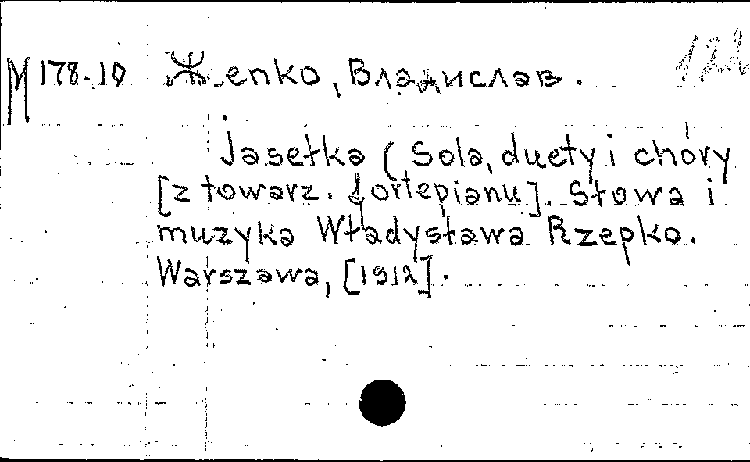 M 178-10 Жепко, Владислав. 122
Jasełka (Sola, duety i chóry
[z towarz. fortepianu]. Słowa i
muzyka Władysława Rzepko.
Warszawa, [1912].